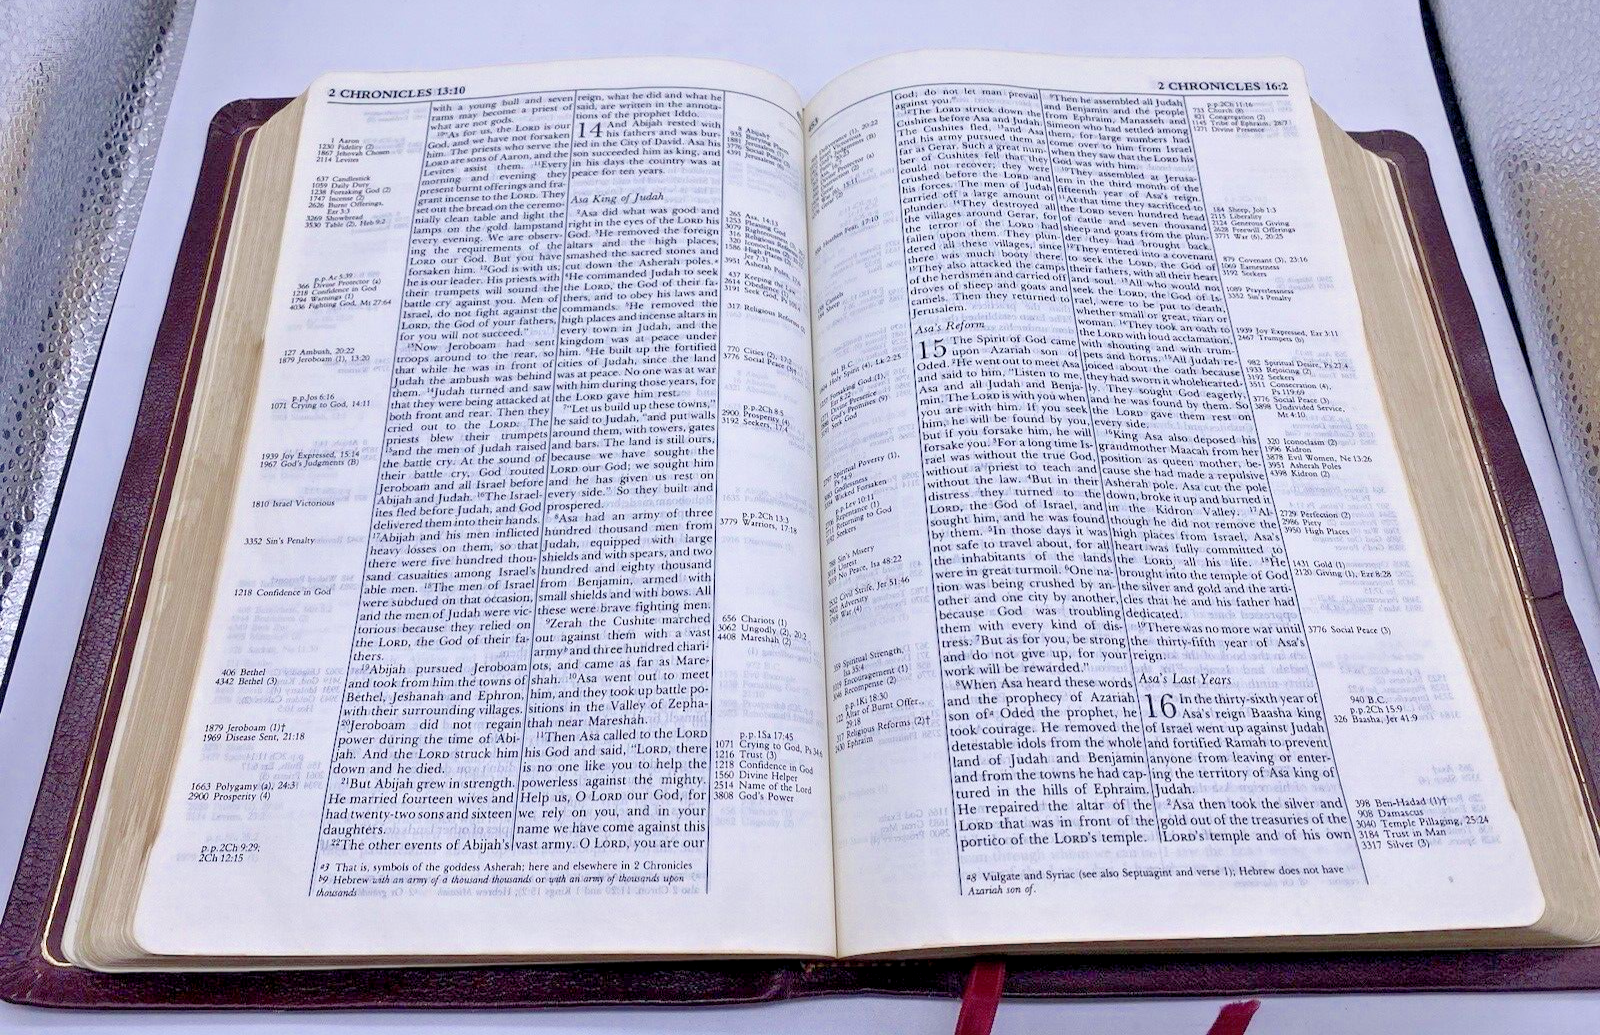 2 CHRONICLES 13:10
1 Aaron
1230 Fidelity (2)
1867 Jehovah Chosen
2114 Levites
637 Candlestick
1059 Daily Duty
1238 Forsaking God (2)
1747 Incense (2)
2626 Burnt Offerings,
Ezr 3:3
3269 Showbread
3530 Table (2), Heb 9:2
p.p.Ac 5:39
366 Divine Protector (a)
1218 Confidence in God
1794 Warnings (1)
4036 Fighting God, Mt 27:64
127 Ambush, 20:22
1879 Jeroboam (1), 13:20
p.p.Jos 6:16
1071 Crying to God, 14:11
1939 Joy Expressed, 15:14
1967 God's Judgments (B)
1810 Israel Victorious
3352 Sin's Penalty
1218 Confidence in God
406 Bethel
4342 Bethel (3)
1879 Jeroboam (1)†
1969 Disease Sent, 21:18
1663 Polygamy (a), 24:3
2900 Prosperity (4)
p.p.2Ch 9:29;
2Ch 12:15
with a young bull and seven
rams may become a priest of
what are not gods.
10As for us, the LORD is our
God, and we have not forsaken
him. The priests who serve the
LORD are sons of Aaron, and the
Levites assist them. 11Every
morning and evening they
present burnt offerings and fra-
grant incense to the LORD. They
set out the bread on the ceremo-
nially clean table and light the
lamps on the gold lampstand
every evening. We are observ-
ing the requirements of the
LORD our God. But you have
forsaken him. 12God is with us;
he is our leader. His priests with
their trumpets will sound the
battle cry against you. Men of
Israel, do not fight against the
LORD, the God of your fathers,
for you will not succeed."
13Now Jeroboam had sent
troops around to the rear, so
that while he was in front of
Judah the ambush was behind
them. 14Judah turned and saw
that they were being attacked at
both front and rear. Then they
cried out to the LORD. The
priests blew their trumpets
15and the men of Judah raised
the battle cry. At the sound of
their battle cry, God routed
Jeroboam and all Israel before
Abijah and Judah. 16The Israel-
ites fled before Judah, and God
delivered them into their hands.
17Abijah and his men inflicted
heavy losses on them, so that
there were five hundred thou-
sand casualties among Israel's
able men. 18The men of Israel
were subdued on that occasion,
and the men of Judah were vic-
torious because they relied on
the LORD, the God of their fa-
thers.
19Abijah pursued Jeroboam
and took from him the towns of
Bethel, Jeshanah and Ephron,
with their surrounding villages.
20Jeroboam did not regain
power during the time of Abi-
jah. And the LORD struck him
down and he died.
21But Abijah grew in strength.
He married fourteen wives and
had twenty-two sons and sixteen
daughters.
22The other events of Abijah's
reign, what he did and what he
said, are written in the annota-
tions of the prophet Iddo.
14 And Abijah rested with
his fathers and was bur-
ied in the City of David. Asa his
son succeeded him as king, and
in his days the country was at
peace for ten years.
Asa King of Judah
2Asa did what was good and
right in the eyes of the LORD his
God. 3He removed the foreign
altars and the high places,
smashed the sacred stones and
cut down the Asherah poles.a
4He commanded Judah to seek
the LORD, the God of their fa-
thers, and to obey his laws and
commands. 5He removed the
high places and incense altars in
every town in Judah, and the
kingdom was at peace under
him. 6He built up the fortified
cities of Judah, since the land
was at peace. No one was at war
with him during those years, for
the LORD gave him rest.
7"Let us build up these towns,"
he said to Judah, "and put walls
around them, with towers, gates
and bars. The land is still ours,
because we have sought the
LORD our God; we sought him
and he has given us rest on
every side." So they built and
prospered.
8Asa had an army of three
hundred thousand men from
Judah, equipped with large
shields and with spears, and two
hundred and eighty thousand
from Benjamin, armed with
small shields and with bows. All
these were brave fighting men.
9Zerah the Cushite marched
out against them with a vast
armyb and three hundred chari-
ots, and came as far as Mare-
shah. 10Asa went out to meet
him, and they took up battle po-
sitions in the Valley of Zepha-
thah near Mareshah.
11Then Asa called to the LORD
his God and said, "LORD, there
is no one like you to help the
powerless against the mighty.
Help us, O LORD our God, for
we rely on you, and in your
name we have come against this
vast army. O LORD, you are our
8 Abijah†
265 Asa, 14:11
3951 Asherah Poles
437
2614 Obedience
3191 Seek God
317 Religious Reforms
770 Cities (2)
3776 Social Peace
p.p.2Ch 8:5
2900 Prosperity (4)
3192 Seekers, 17:4
p.p.2Ch 13:3
3779 Warriors, 17:18
656 Chariots (1)
3062 Ungodly (2), 20:2
4408 Mareshah (2)
p.p.1Sa 17:45
1071 Crying to God, Ps 34:6
1216 Trust (3)
1218 Confidence in God
1560 Divine Helper
2514 Name of the Lord
3808 God's Power
a3 That is, symbols of the goddess Asherah; here and elsewhere in 2 Chronicles
b9 Hebrew with an army of a thousand thousands or with an army of thousands upon
thousands
2 CHRONICLES 16:2
Heathen Fear, 17:10
941 B.C.
Holy Spirit (4), Lk 2:25
Forsaking God (1),
Divine Presence
God's Promises (9)
Seek God
Spiritual Poverty (1),
Ps 74:9
Godlessness
Wicked Forsaken
p.p.Lev 10:11
Repentance (1)
Returning to God
Seekers
Sin's Misery
Unrest
No Peace, Isa 48:22
Civil Strife, Jer 51:46
Adversity
War (4)
Spiritual Strength,
Isa 35:4
Encouragement (1)
Recompense (2)
p.p.1Ki 18:30
Altar of Burnt Offer.,
29:18
317 Religious Reforms (2)†
Ephraim
God; do not let man prevail
against you."
12The LORD struck down the
Cushites before Asa and Judah.
The Cushites fled, 13and Asa
and his army pursued them as
far as Gerar. Such a great num-
ber of Cushites fell that they
could not recover; they were
crushed before the LORD and
his forces. The men of Judah
carried off a large amount of
plunder. 14They destroyed all
the villages around Gerar, for
the terror of the LORD had
fallen upon them. They plun-
dered all these villages, since
there was much booty there.
15They also attacked the camps
of the herdsmen and carried off
droves of sheep and goats and
camels. Then they returned to
Jerusalem.
Asa's Reform
15 The Spirit of God came
upon Azariah son of
Oded. 2He went out to meet Asa
and said to him, "Listen to me,
Asa and all Judah and Benja-
min. The LORD is with you when
you are with him. If you seek
him, he will be found by you,
but if you forsake him, he will
forsake you. 3For a long time Is-
rael was without the true God,
without a priest to teach and
without the law. 4But in their
distress they turned to the
LORD, the God of Israel, and
sought him, and he was found
by them. 5In those days it was
not safe to travel about, for all
the inhabitants of the lands
were in great turmoil. 6One na-
tion was being crushed by an-
other and one city by another,
because God was troubling
them with every kind of dis-
tress. 7But as for you, be strong
and do not give up, for your
work will be rewarded."
8When Asa heard these words
and the prophecy of Azariah
son ofa Oded the prophet, he
took courage. He removed the
detestable idols from the whole
land of Judah and Benjamin
and from the towns he had cap-
tured in the hills of Ephraim.
He repaired the altar of the
LORD that was in front of the
portico of the LORD's temple.
9Then he assembled all Judah
and Benjamin and the people
from Ephraim, Manasseh and
Simeon who had settled among
them, for large numbers had
come over to him from Israel
when they saw that the LORD his
God was with him.
10They assembled at Jerusa-
lem in the third month of the
fifteenth year of Asa's reign.
11At that time they sacrificed to
the LORD seven hundred head
of cattle and seven thousand
sheep and goats from the plun-
der they had brought back.
12They entered into a covenant
to seek the LORD, the God of
their fathers, with all their heart
and soul. 13All who would not
seek the LORD, the God of Is-
rael, were to be put to death,
whether small or great, man or
woman. 14They took an oath to
the LORD with loud acclamation,
with shouting and with trum-
pets and horns. 15All Judah re-
joiced about the oath because
they had sworn it wholehearted-
ly. They sought God eagerly,
and he was found by them. So
the LORD gave them rest on
every side.
16King Asa also deposed his
grandmother Maacah from her
position as queen mother, be-
cause she had made a repulsive
Asherah pole. Asa cut the pole
down, broke it up and burned it
in the Kidron Valley. 17Al-
though he did not remove the
high places from Israel, Asa's
heart was fully committed to
the LORD all his life. 18He
brought into the temple of God
the silver and gold and the arti-
cles that he and his father had
dedicated.
19There was no more war until
the thirty-fifth year of Asa's
reign.
Asa's Last Years
16 In the thirty-sixth year of
Asa's reign Baasha king
of Israel went up against Judah
and fortified Ramah to prevent
anyone from leaving or enter-
ing the territory of Asa king of
Judah.
2Asa then took the silver and
gold out of the treasuries of the
LORD's temple and of his own
p.p.2Ch 11:16
753 Church (8)
821 Congregation (2)
1145 Tribe of Ephraim, 28:7
1271 Divine Presence
184 Sheep, Job 1:3
2115 Liberality
2124 Generous Giving
2628 Freewill Offerings
3771 War (6), 20:25
879 Covenant (3), 23:16
1069 Earnestness
3192 Seekers
1089 Prayerlessness
3352 Sin's Penalty
1939 Joy Expressed, Ezr 3:11
2467 Trumpets (b)
982 Spiritual Desire, Ps 27:4
1933 Rejoicing (2)
3192 Seekers
3511 Consecration (4),
Ps 119:69
3776 Social Peace (3)
3898 Undivided Service,
Mt 4:10
320 Iconoclasm (2)
1996 Kidron
3878 Evil Women, Ne 13:26
3951 Asherah Poles
4398 Kidron (2)
2729 Perfection (2)
2986 Piety
3950 High Places
1431 Gold (1)
2120 Giving (1), Ezr 8:28
3776 Social Peace (3)
940 B.C.
p.p.2Ch 15:9
326 Baasha, Jer 41:9
398 Ben-Hadad (1)†
908 Damascus
3040 Temple Pillaging, 25:24
3184 Trust in Man
3317 Silver (3)
a8 Vulgate and Syriac (see also Septuagint and verse 1); Hebrew does not have
Azariah son of.